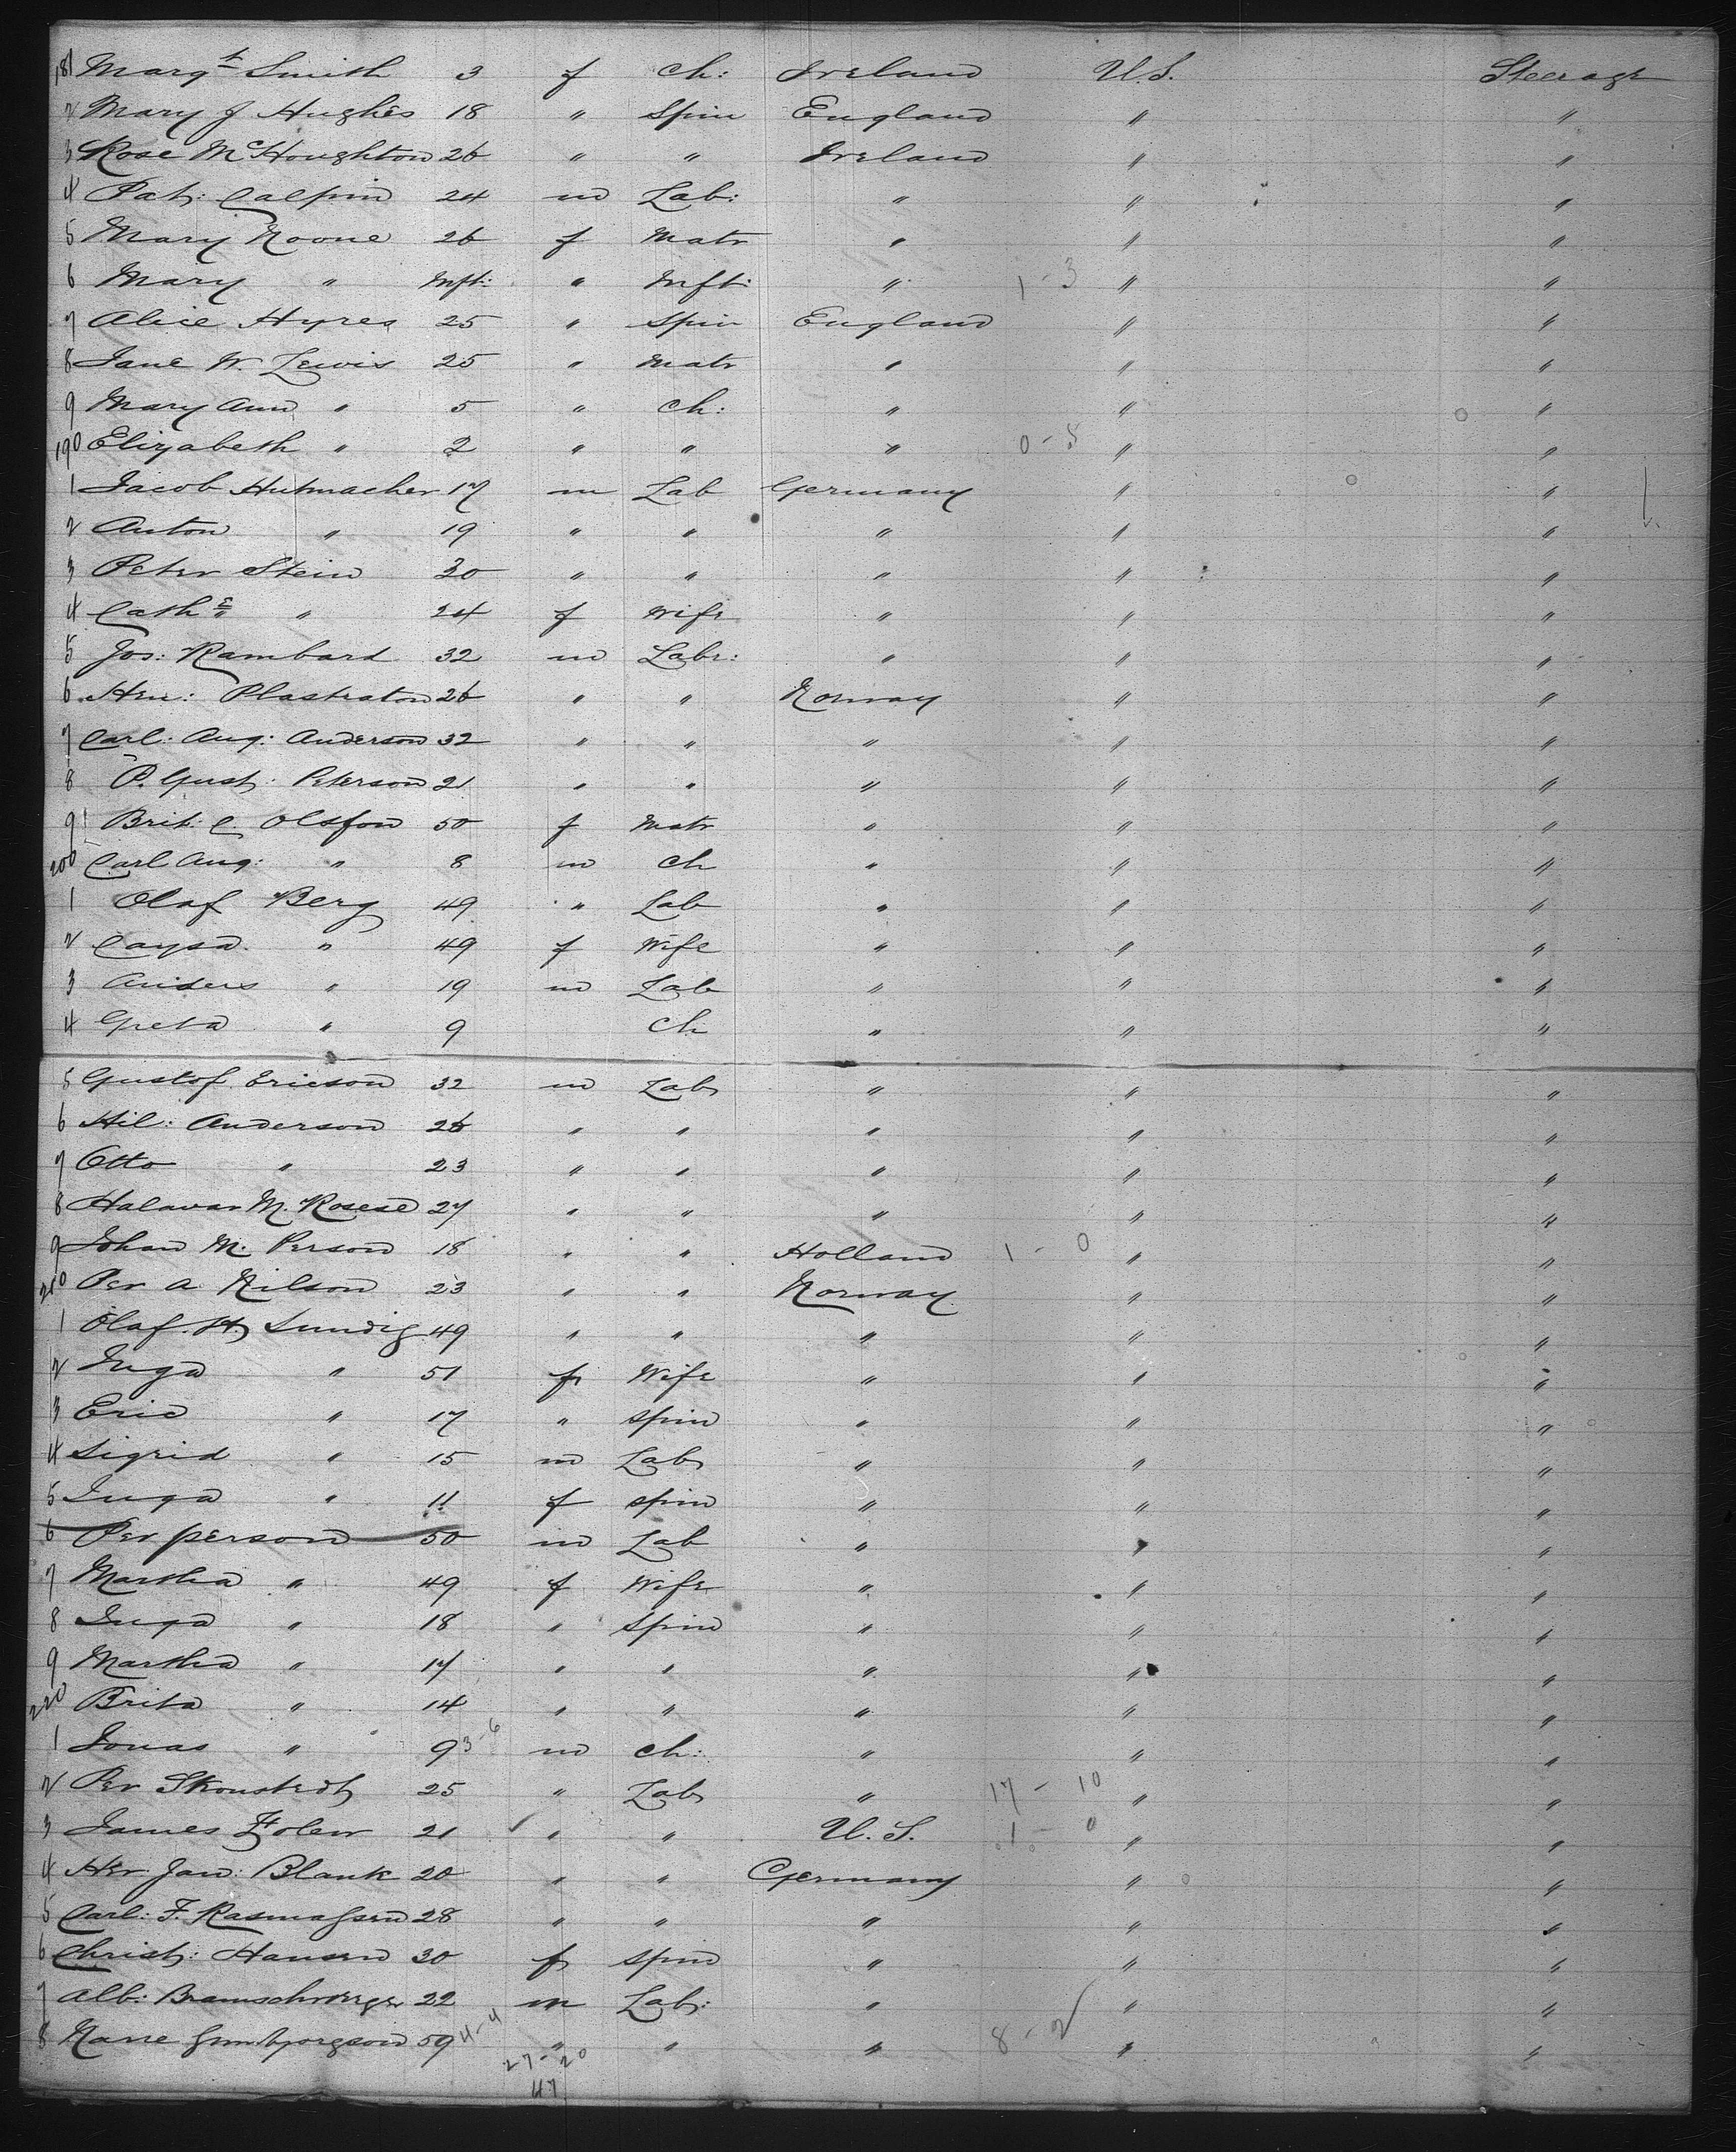 181 Margt Smith 3 f Ch: Ireland U.S. Steerage
2 Mary J Hughes 18 " Spin England " "
3 Rose McHoughton 26 " " Ireland " "
4 Pat: Calpin 24 m Lab: " " "
5 Mary Noone 26 f Matr " " "
6 Mary " Inft: " Inft: " 1-3 " "
7 Alice Hyres 25 " Spin England " "
8 Jane W. Lewis 25 " Matr " " "
9 Mary Ann " 5 " Ch: " " "
190 Elizabeth " 2 " " " 0-5 " "
1 Jacob Hutmacher 17 m Lab Germany " "
2 Anton " 19 " " " " "
3 Peter Stein 30 " " " " "
4 Cathe " 24 f Wife " " "
5 Jos: Rambart 32 m Labr: " " "
6 Hen: Plastraton 26 " " Norway " "
7 Carl: Aug: Anderson 32 " " " " "
8 P. Gust: Peterson 21 " " " " "
9 Brit: C. Olsson 50 f Matr " " "
200 Carl Aug: " 8 m Ch " " "
1 Olaf Berg 49 " Lab " " "
2 Caysa " 49 f Wife " " "
3 Anders " 19 m Lab " " "
4 Greta " 9 Ch " " "
5 Gustof Ericson 32 m Lab " " "
6 Hil: Anderson 26 " " " " "
7 Otto " 23 " " " " "
8 Halavar M. Rosese 27 " " " " "
9 Johan M. Person 18 " " Holland 1-0 " "
210 Per A Nilson 23 " " Norway " "
1 Olaf. H. Sundig 49 " " " " "
2 Inga " 51 f Wife " " "
3 Eric " 17 " Spin " " "
4 Sigrid " 15 m Lab " " "
5 Inga " 11 f Spin " " "
6 Per person 50 m Lab " " "
7 Martha " 49 f Wife " " "
8 Inga " 18 " Spin " " "
9 Martha " 17 " " " " "
220 Brita " 14 " " " " "
1 Jonas " 9 3-6 m Ch: " " "
2 Per Skonstedt 25 " Lab " 17-10 " "
3 James Holew 21 " " U.S. 1-0 " "
4 Her: Jan: Blank 20 " " Germany " "
5 Carl: F. Rasmassen 28 " " " " "
6 Christ: Hansen 30 f Spin " " "
7 Alb: 22 m Lab: " " "
8 59 4-4 " " " 8-2 " "
27-20
47